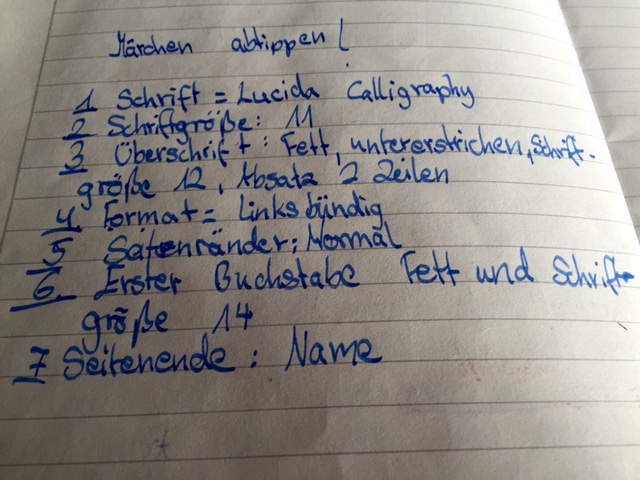 Märchen abtippen!
1 Schrift = Lucida Calligraphy
2 Schriftgröße: 11
3 Überschrift: Fett, untererstrichen, Schrift-
größe 12, Absatz 2 Zeilen
4 Format = Linksbündig
5 Seitenränder: Normal
6 Erster Buchstabe Fett und Schrift-
größe 14
7 Seitenende: Name